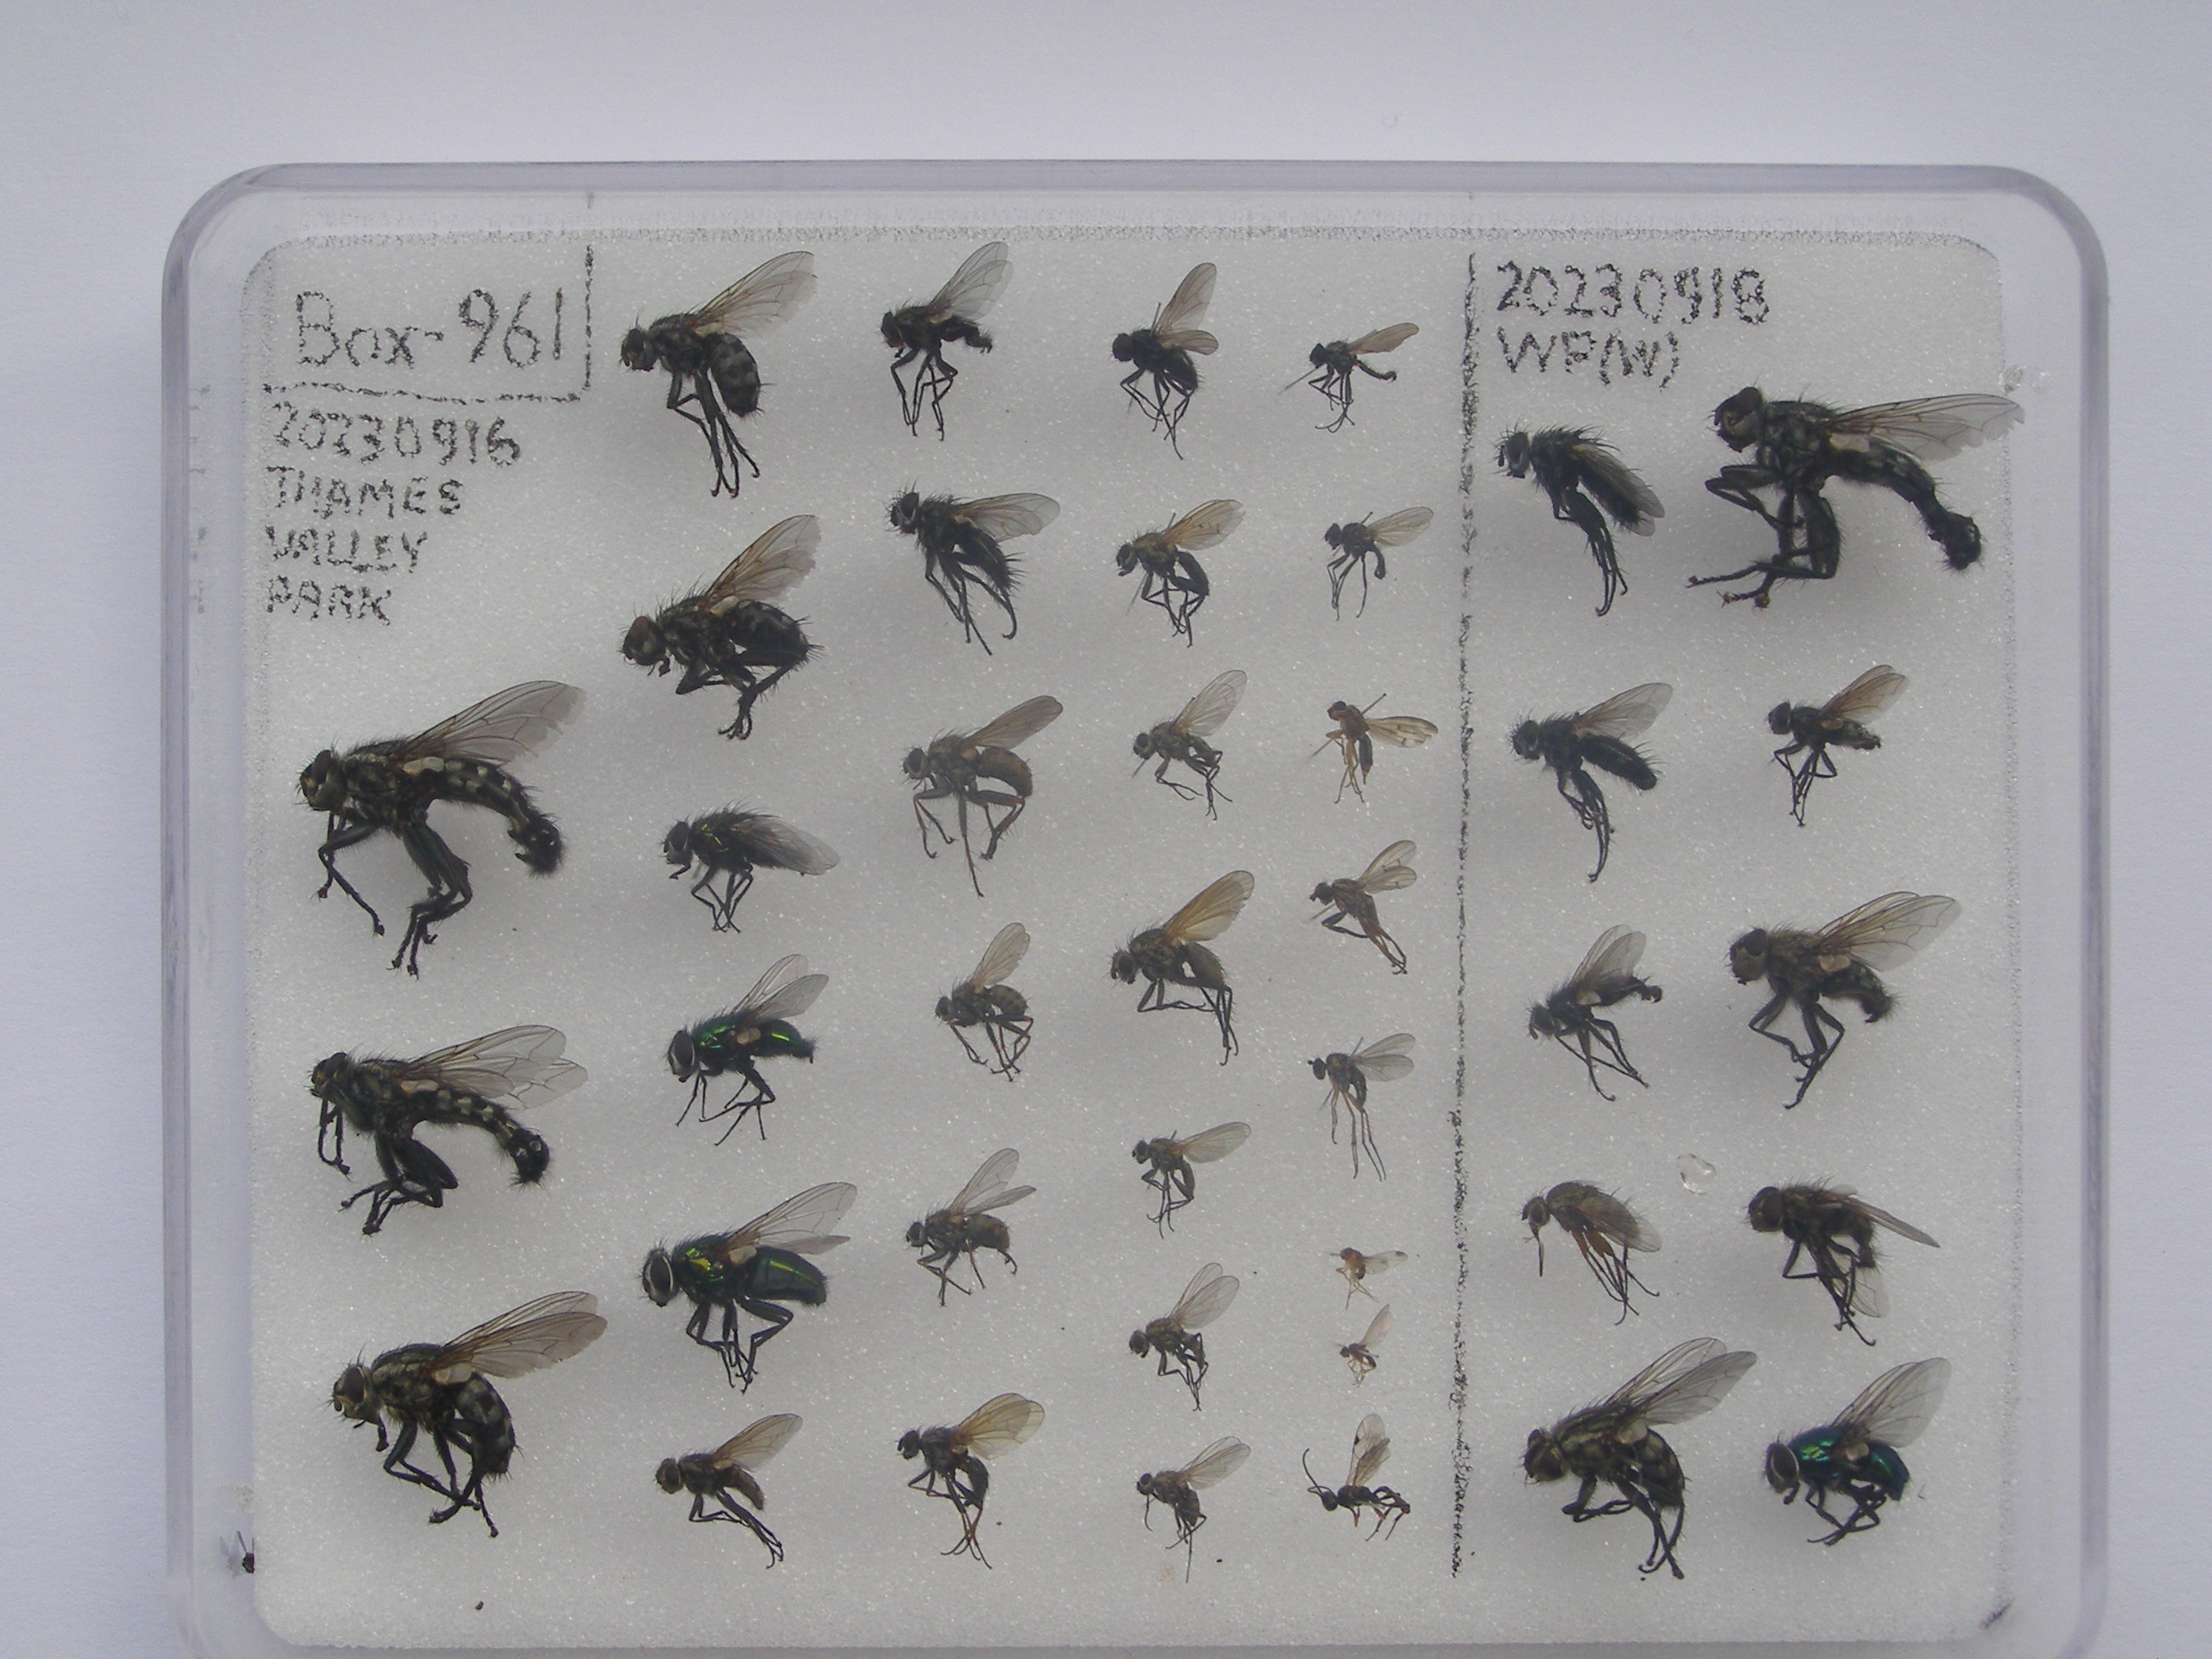 Box-961
20230916
THAMES
VALLEY
PARK
20230918
WP(W)